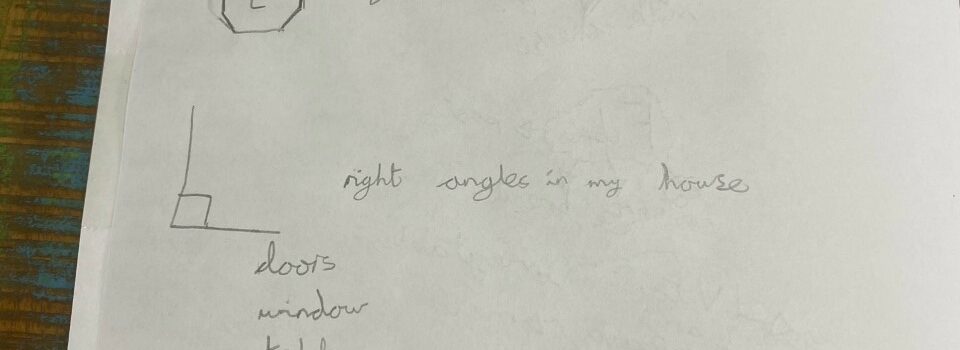 right angles in my house
doors
window